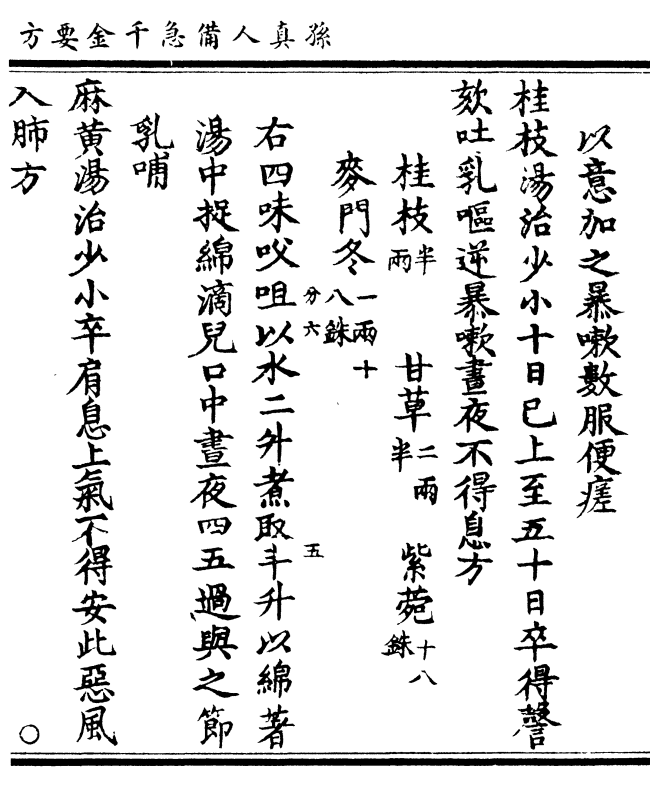 孫真人備急千金要方
以意加之暴嗽數服便瘥
桂枝湯治少小十日已上至五十日卒得謦
欬吐乳嘔逆暴嗽晝夜不得息方
桂枝半兩 甘草二兩半 紫菀十八銖
麥門冬一兩十八銖
右四味㕮咀以水二升煮取半升以綿著
六分
五
湯中捉綿滴兒口中晝夜四五過與之節
乳哺
麻黃湯治少小卒肩息上氣不得安此惡風
入肺方